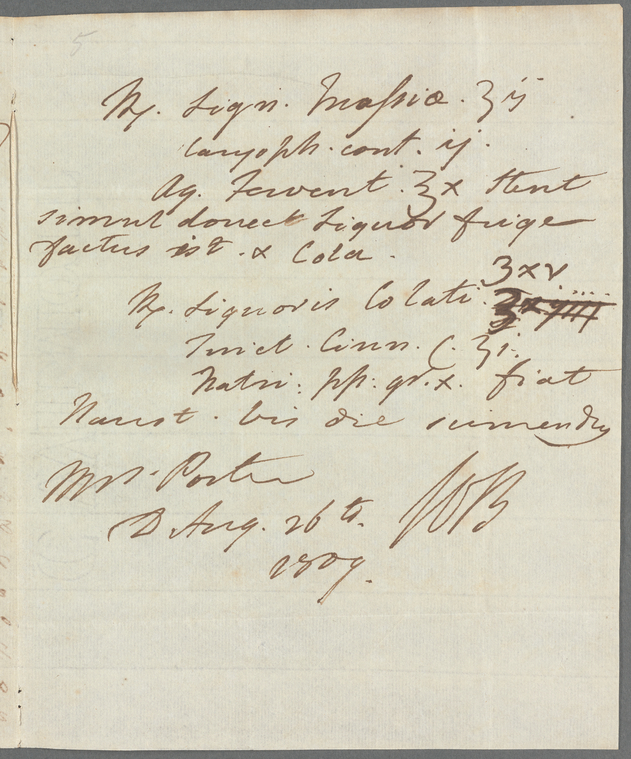 5
℞. Lign. Quassiæ. ʒij
Caryoph. cont. ij.
Aq. Fervent. ℥x Stent
simul donec Liquor frige
factus est. & Cola.
℞. Liquoris Colati. ʒxv
Tinct. Cinn. C. ʒi.
Natri: pp: gr. x. fiat
Haust. bis die sumendus
Mrs. Porter
D Aug. 26th. WB
1809.